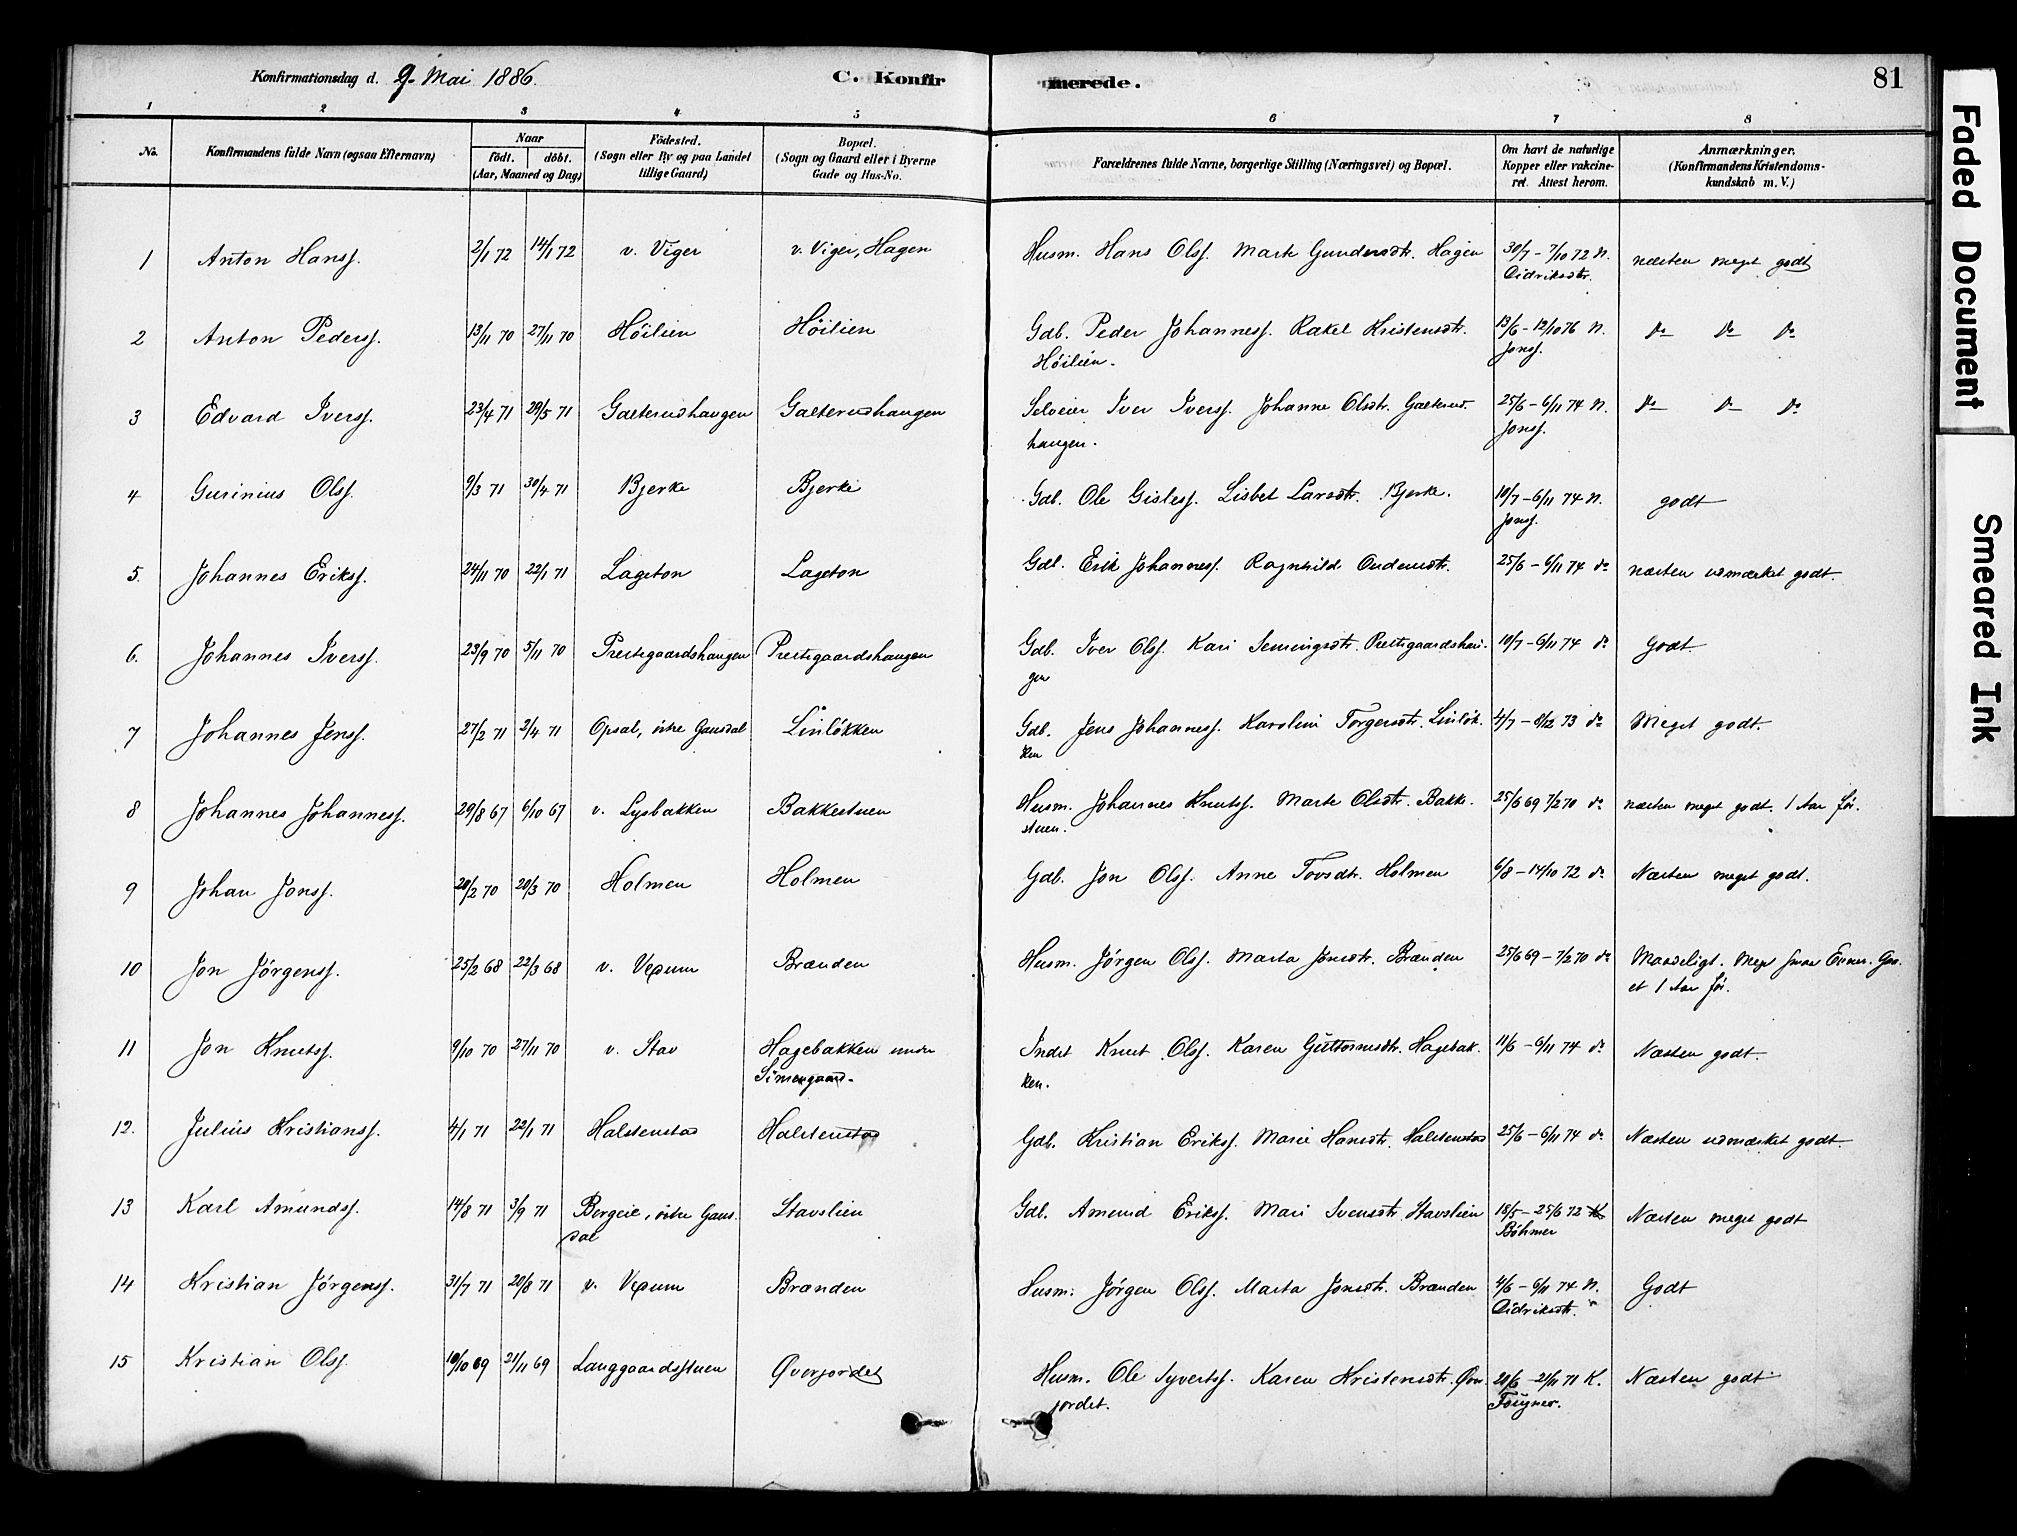 Konfirmationsdag d. 9. Mai 1886. C. Konfirmerede. 81
1 2 3 4 5 6 7 8
No. Konfirmandens fulde Navn (ogsaa Efternavn) Naar født. døbt. (Aar, Maaned og Dag) Fødested. (Sogn eller By og paa Landet tillige Gaard) Bopæl. (Sogn og Gaard eller i Byerne Gade og Hus-No. Forældrenes fulde Navne, borgerlige Stilling (Næringsvei) og Bopæl. Om havt de naturlige Kopper eller vakcineret. Attest herom. Anmærkninger. (Konfirmandens Kristendomskundskab m. V.)
1 Anton Hanss. 2/1 72 14/1 72 v. Viger v. Viger, Hagen Husm. Hans Olss. Marte Gundersdtr. Hagen 30/7 - 7/10 72 N. næsten meget godt
Didriksdtr.
2 Anton Pederss. 13/11 70 27/11 70 Höilien Höilien Gdb. Peder Johanness. Rakel Kristensdtr. 13/6 - 12/10 76 N. do do do
Höilien. Jonss.
3 Edvard Iverss. 23/4 71 29/5 71 Galterudhaugen Galterudhaugen Selveier Iver Iverss. Johanne Olsdtr. Galterud- 25/6 - 6/11 74 N. do do do
haugen. Jonss.
4 Gurinius Olss. 9/3 71 30/4 71 Bjerke Bjerke Gdb. Ole Gisless. Lisbet Larsdtr. Bjerke. 10/7 - 6/11 74 N. godt
Jonss.
5. Johannes Erikss. 24/11 70 22/1 71 Lageton Lageton Gdb. Erik Johanness. Ragnhild Oudensdtr. 25/6 - 6/11 74 do næsten udmærket godt.
6. Johannes Iverss. 23/9 70 5/11 70 Prestegaardshaugen Prestegaardshaugen Gdb. Iver Olss. Kari Semingsdtr. Prestegaardshau- 10/7 - 6/11 74 do Godt.
gen
7 Johannes Jenss. 27/2 71 2/4 71 Opsal, östre Gausdal Linlökken Gdb. Jens Johanness. Karolini Torgersdtr. Linlök- 4/7 - 8/12 73 do Meget godt.
ken
8 Johannes Johanness. 29/8 67 6/10 67 v. Lysbakken Bakkestuen Husm. Johannes Knutss. Marte Olsdtr. Bakke- 25/6 69 7/2 70 do næsten meget godt. 1 Aar för.
stuen.
9 Johan Jonss. 20/2 70 20/3 70 Holmen Holmen Gdb. Jon Olss. Anne Tovsdtr. Holmen 6/8 - 14/10 72 do Næsten meget godt.
10 Jon Jörgenss. 25/2 68 22/3 68 v. Vexum Brænden Husm. Jörgen Olss. Marta Jonsdtr. Brænden 25/6 69 - 7/2 70 do Maadeligt. Meget smaa Evner. Gaa-
et 1 Aar för.
11 Jon Knutss. 9/10 70 27/11 70 v. Stav Hagebakken under Inder Knut Olss. Karen Guttormsdtr. Hagebak- 11/6 - 6/11 74 do Næsten godt.
Simengaard. ken.
12. Julius Kristianss. 4/1 71 22/1 71 Halstenstad Halstenstad Gdb. Kristian Erikss. Marie Hansdtr. Halstenstad 25/6 - 6/11 74 do Næsten udmærket godt.
13 Karl Amundss. 14/8 71 3/9 71 Borgeie, östre Gaus- Stavslien Gdb. Amund Erikss. Mari Svensdtr. Stavslien 18/5 - 25/6 72 Næsten meget godt
dal Böhmer
14 Kristian Jörgenss. 31/7 71 20/8 71 v. Vexum Brænden Husm. Jörgen Olss. Marta Jonsdtr. Brænden 4/6 - 6/11 74 N. Godt
Didriksdtr.
15 Kristian Olss. 10/10 69 21/11 69 Langgaardsstuen Øverjordet Husm. Ole Syvertss. Karen Kristensdtr. Øver- 20/6 - 21/11 71 K. Næsten godt.
jordet. Toigner.
Faded Document
Smeared Ink